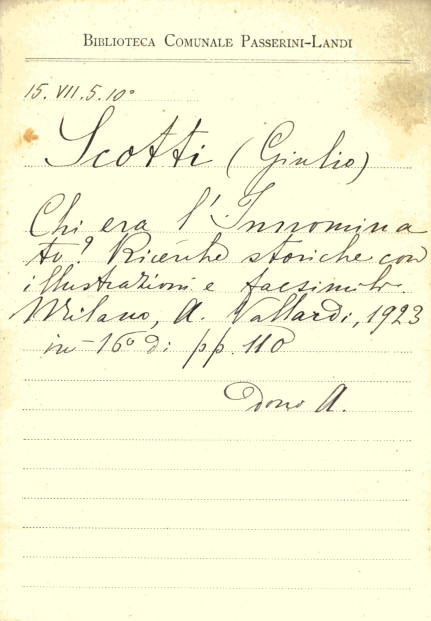 BIBLIOTECA COMUNALE PASSERINI-LANDI
15. VII. 5. 10°
Scotti (Giulio)
Chi era l'Innomina
to? Ricerche storiche con
illustrazioni e facsimili.
Milano, A. Vallardi, 1923
in-16° di pp. 110
Dono A.